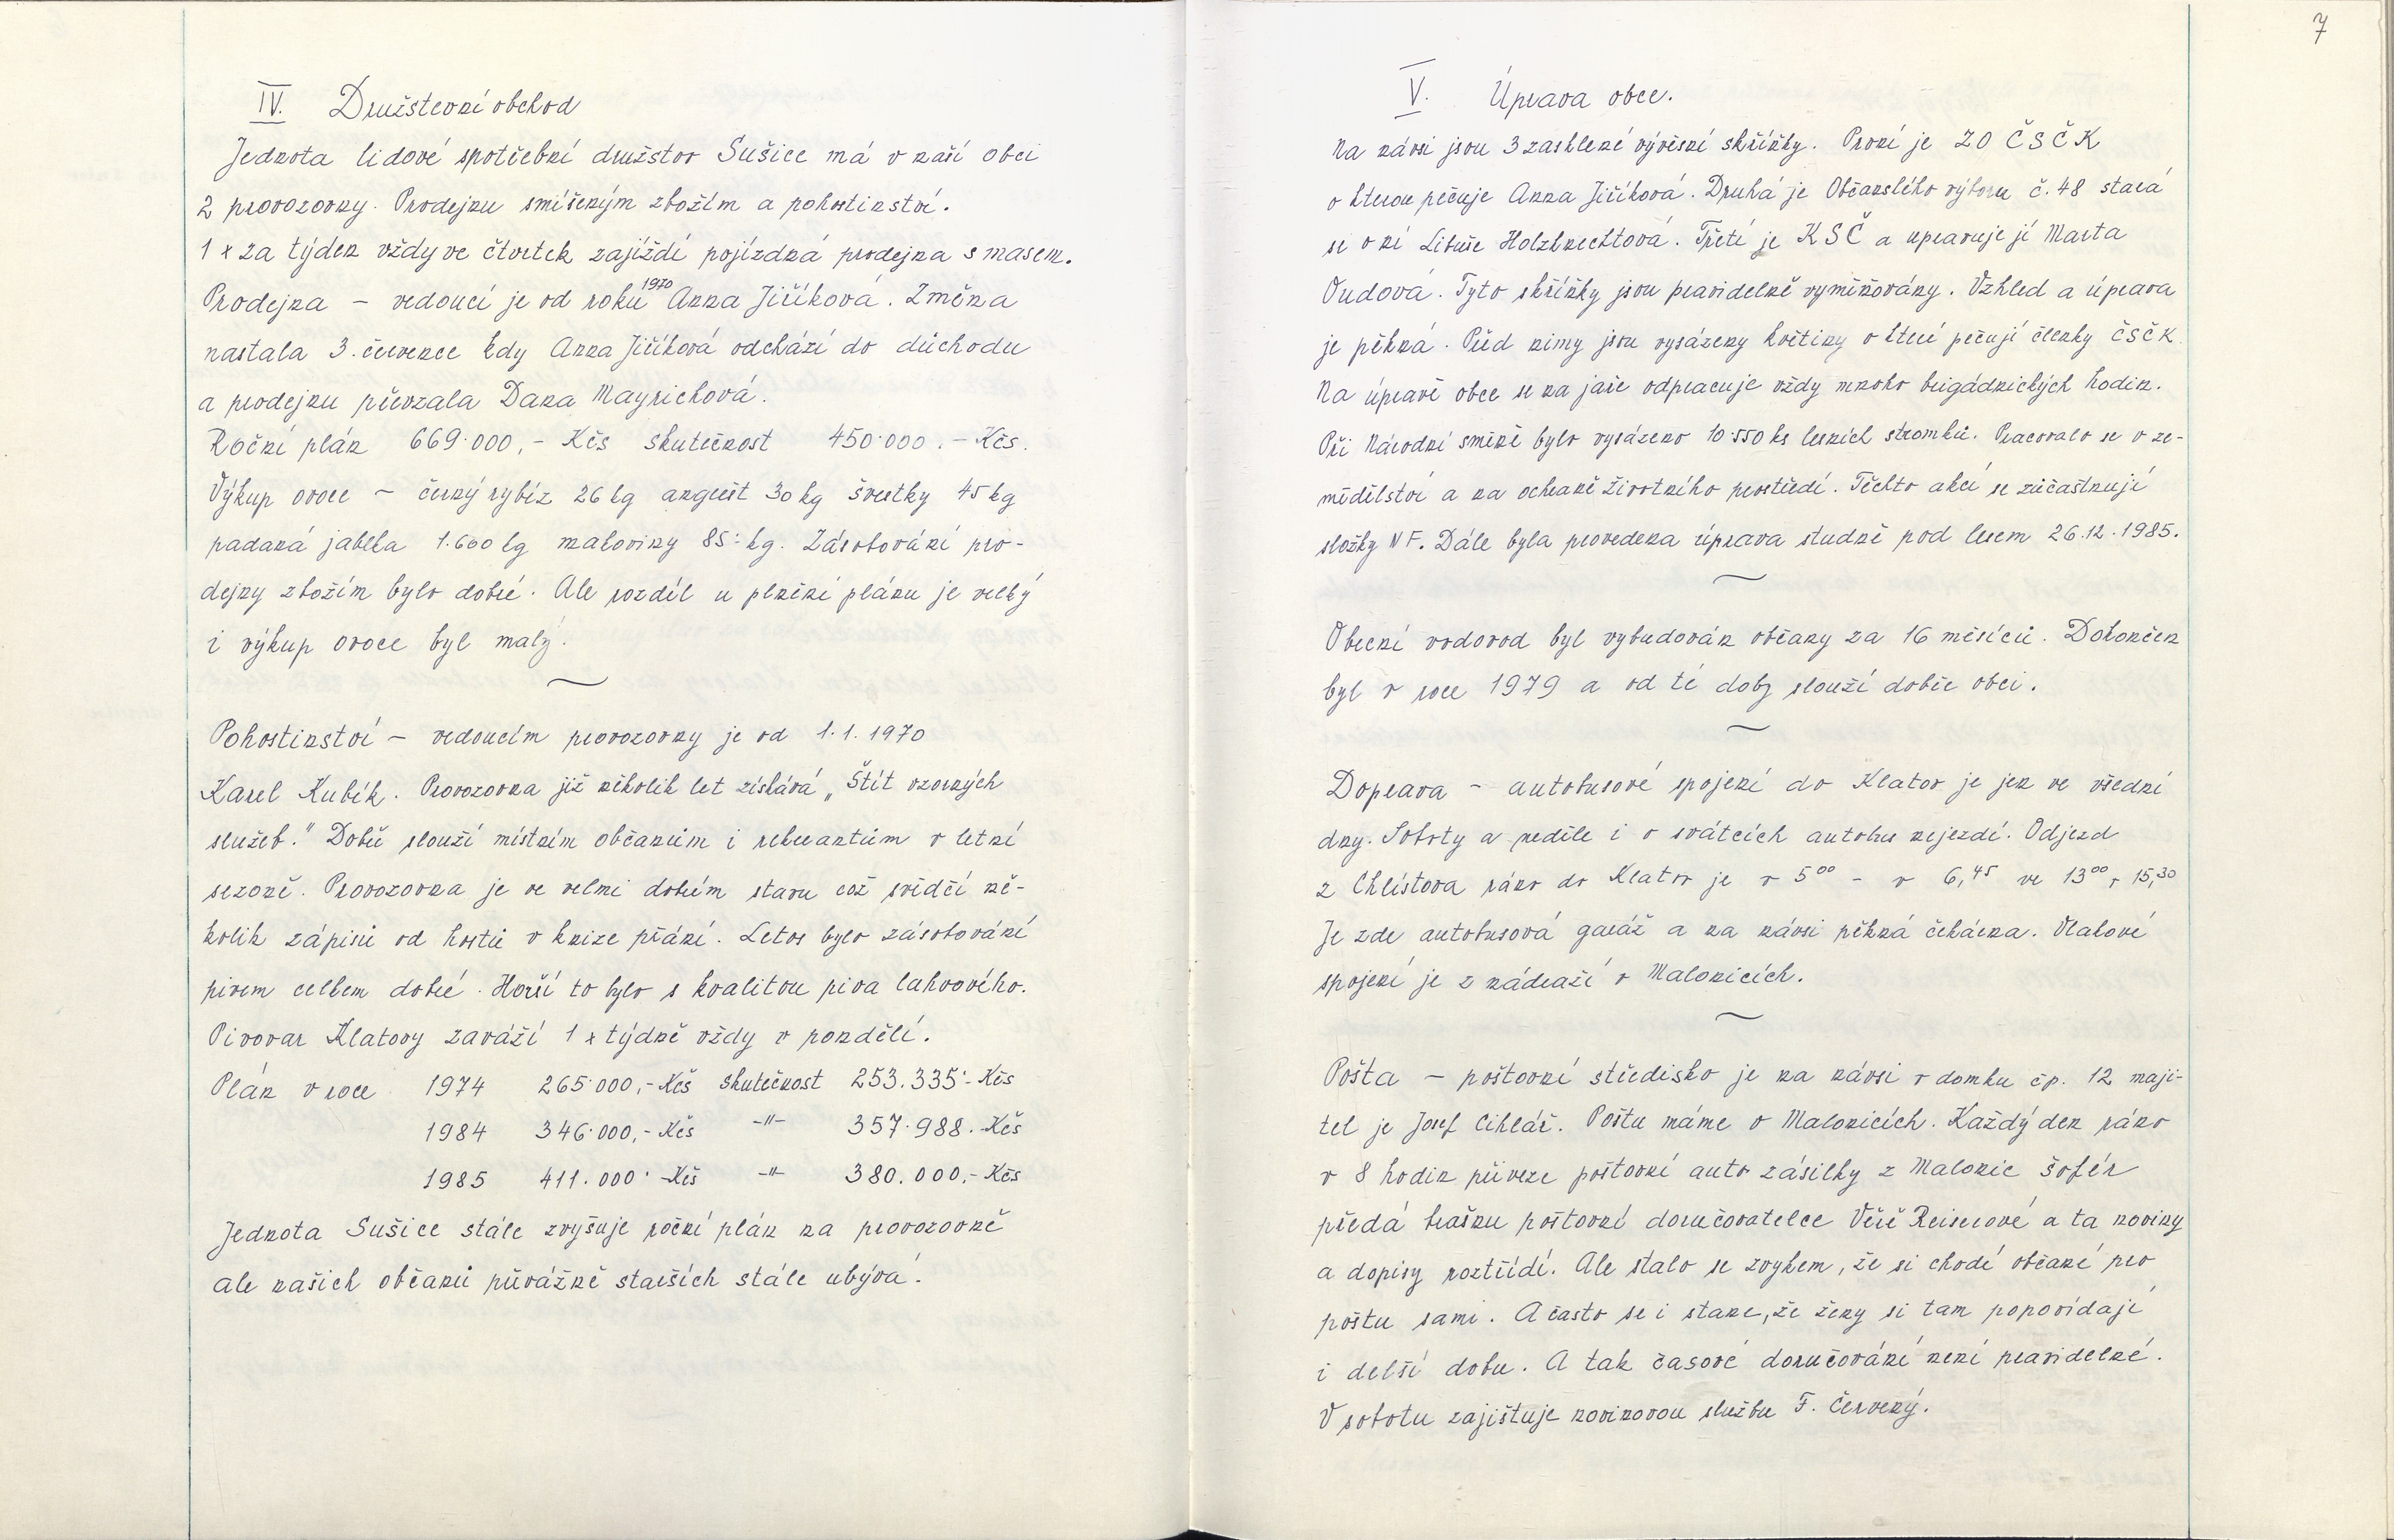 IV. Družstevní obchod
Jednota lidové spotřební družstvo Sušice má v naší obci
2 provozovny. Prodejnu smíšeným zbožím a pohostinství.
1 x za týden vždy ve čtvrtek zajíždí pojízdná prodejna s masem.
Prodejna – vedoucí je od roku 1970 Anna Jiříková. Změna
nastala 3. července kdy Anna Jiříková odchází do důchodu
a prodejnu převzala Dana Mayrichová.
Roční plán 669·000,- Kčs skutečnost 450·000.- Kčs.
Výkup ovoce – černý rybíz 26 kg angrešt 30 kg švestky 45 kg
padaná jablka 1.600 kg maloviny 85·- kg. Zásobování pro-
dejny zbožím bylo dobré. Ale rozdíl u plnění plánu je velký
i výkup ovoce byl malý.
Pohostinství – vedoucím provozovny je od 1.1.1970
Karel Kubík. Provozovna již několik let získává „Štít vzorných
služeb." Dobře slouží místním občanům i rekreantům v letní
sezoně. Provozovna je ve velmi dobrém stavu což svědčí ně-
kolik zápisů od hostů v knize přání. Letos bylo zásobování
pivem celkem dobré. Horší to bylo s kvalitou piva lahvového.
Pivovar Klatovy zaváží 1 x týdně vždy v pondělí.
Plán v roce 1974 265·000,- Kčs skutečnost 253.335·- Kčs
1984 346·000,- Kčs -"- 357·988.- Kčs
1985 411.000·- Kčs -"- 380.000,- Kčs
Jednota Sušice stále zvyšuje roční plán na provozovně
ale našich občanů převážně starších stále ubývá.
7
V. Úprava obce.
Na návsi jsou 3 zasklené vývěsní skříňky. První je ZO ČSČK
o kterou pečuje Anna Jiříková. Druhá je Občanského výboru č. 48 stará
se o ní Libuše Holzknechtová. Třetí je KSČ a upravuje jí Marta
Oudová. Tyto skříňky jsou pravidelně vyměňovány. Vzhled a úprava
je pěkná. Před nimy jsou vysázeny květiny o které pečují členky ČSČK
Na úpravě obce se na jaře odpracuje vždy mnoho brigádnických hodin.
Při Národní směně bylo vysázeno 10·550 ks lesních stromků. Pracovalo se v ze-
mědělství a na ochraně životního prostředí. Těchto akcí se zúčastnují
složky NF. Dále byla provedena úprava studně pod lesem 26.12.1985.
Obecní vodovod byl vybudován občany za 16 měsíců. Dokončen
byl v roce 1979 a od té doby slouží dobře obci.
Doprava – autobusové spojení do Klatov je jen ve všední
dny. Soboty a neděle i o svátcích autobus nejezdí. Odjezd
z Chlístova ráno do Klatov je v 5⁰⁰ – v 6,⁴⁵ ve 13⁰⁰, 15,³⁰
Je zde autobusová garáž a na návsi pěkná čekárna. Vlakové
spojení je z nádraží v Malonicích.
Pošta – poštovní středisko je na návsi v domku čp. 12 maji-
tel je Josef Cihlář. Poštu máme v Malonicích. Každý den ráno
v 8 hodin přiveze poštovní auto zásilky z Malonic šofér
předá brašnu poštovní doručovatelce Věře Reiserové a ta noviny
a dopisy roztřídí. Ale stalo se zvykem, že si chodí občané pro
poštu sami. A často se i stane, že ženy si tam popovídají
i delší dobu. A tak časové doručování není pravidelné.
V sobotu zajištuje novinovou službu F. Červený.